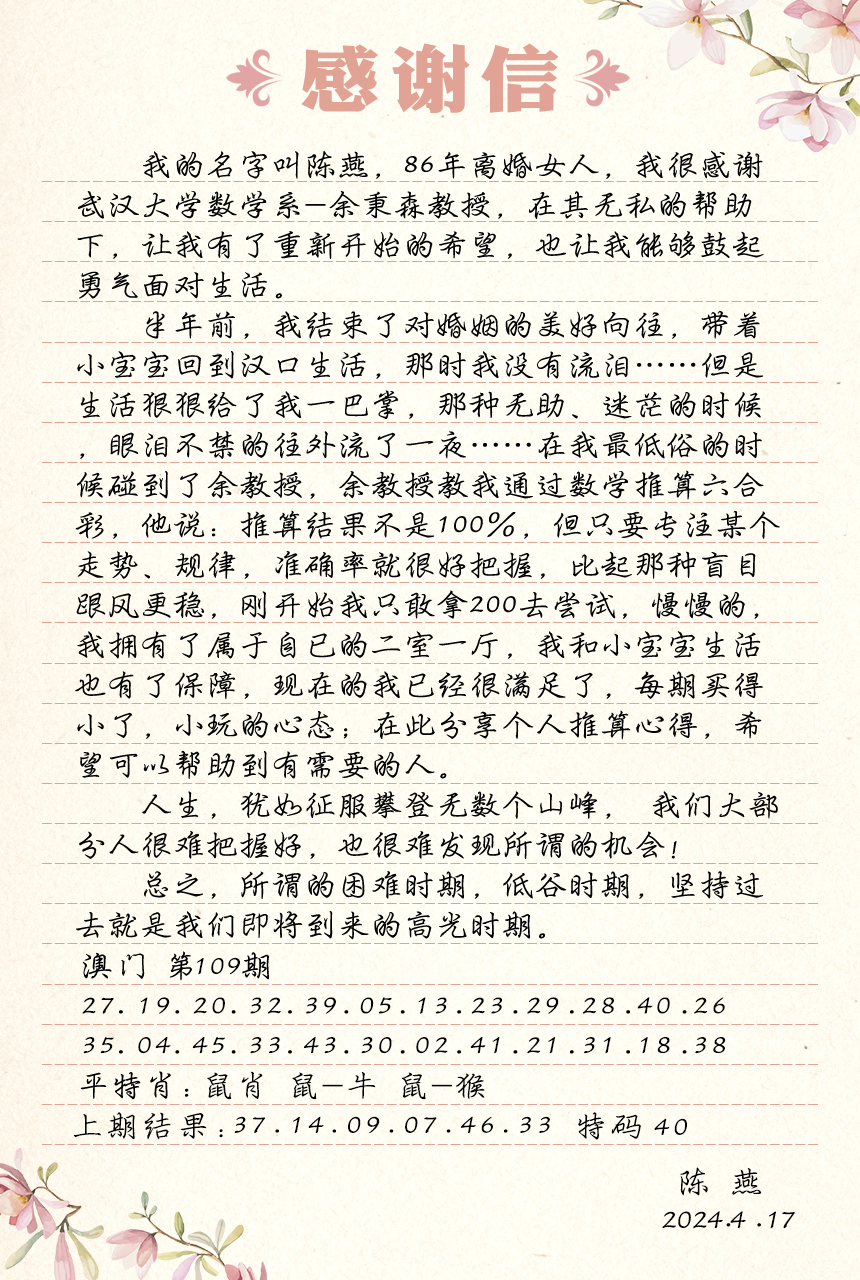 感谢信
我的名字叫陈燕，86年离婚女人，我很感谢
武汉大学数学系—余秉森教授，在其无私的帮助
下，让我有了重新开始的希望，也让我能够鼓起
勇气面对生活。
半年前，我结束了对婚姻的美好向往，带着
小宝宝回到汉口生活，那时我没有流泪……但是
生活狠狠给了我一巴掌，那种无助、迷茫的时候
，眼泪不禁的往外流了一夜……在我最低俗的时
候碰到了余教授，余教授教我通过数学推算六合
彩，他说：推算结果不是100%，但只要专注某个
走势、规律，准确率就很好把握，比起那种盲目
跟风更稳，刚开始我只敢拿200去尝试，慢慢的，
我拥有了属于自已的二室一厅，我和小宝宝生活
也有了保障，现在的我已经很满足了，每期买得
小了，小玩的心态；在此分享个人推算心得，希
望可以帮助到有需要的人。
人生，犹如征服攀登无数个山峰， 我们大部
分人很难把握好，也很难发现所谓的机会！
总之，所谓的困难时期，低谷时期，坚持过
去就是我们即将到来的高光时期。
澳门 第109期
27.19.20.32.39.05.13.23.29.28.40.26
35.04.45.33.43.30.02.41.21.31.18.38
平特肖：鼠肖 鼠—牛 鼠—猴
上期结果：37.14.09.07.46.33 特码40
陈 燕
2024.4.17